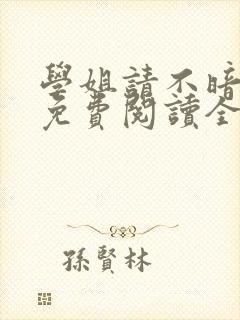 學姐請不暗
免費閱讀全
孫賢林